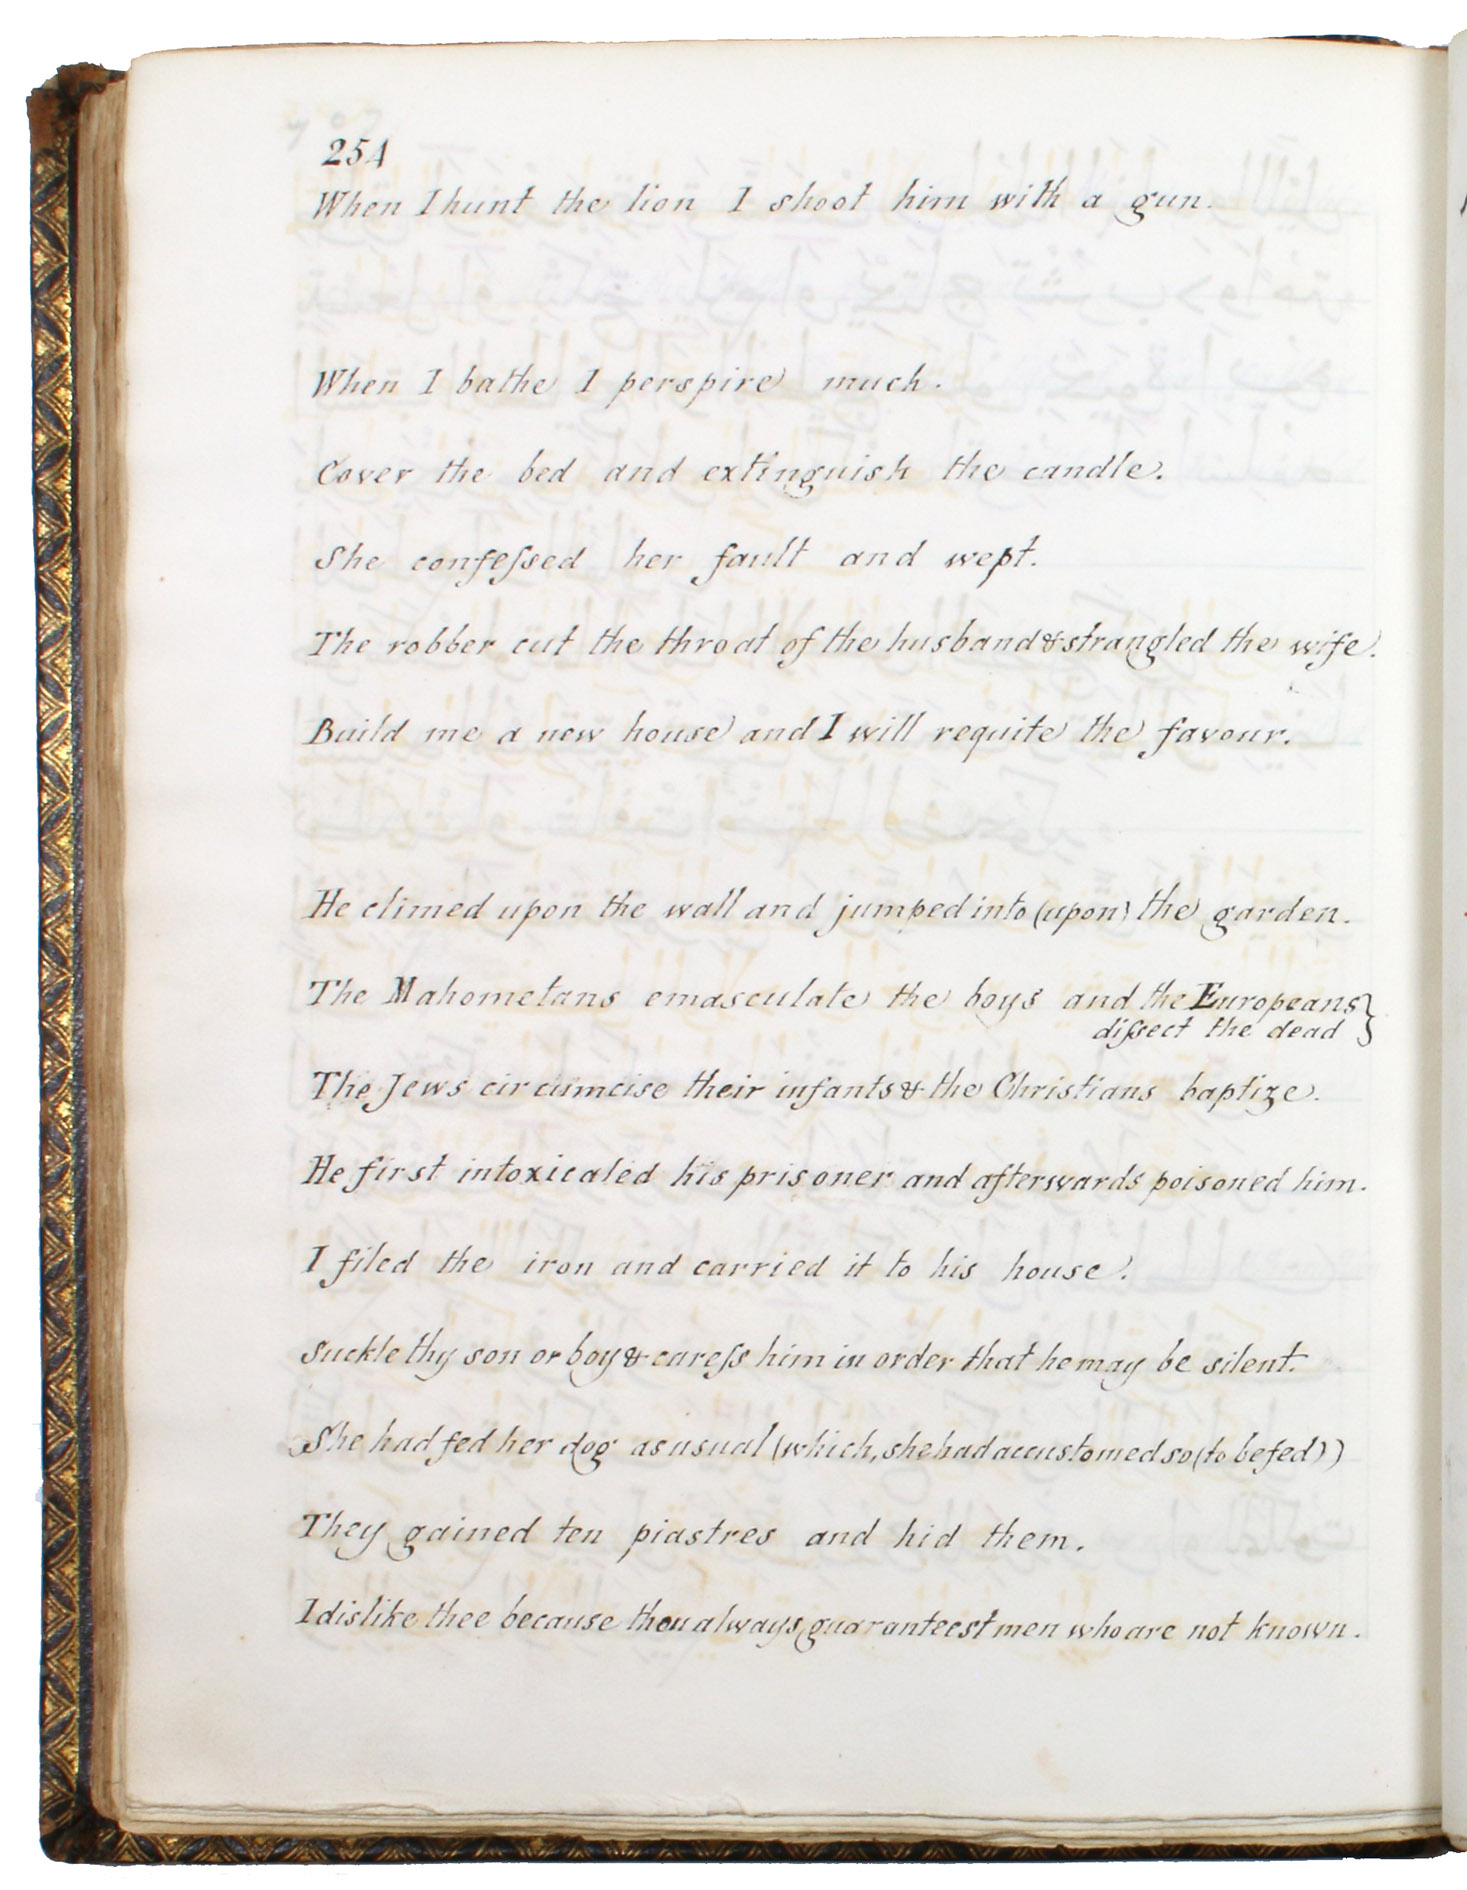 254
When I hunt the lion I shoot him with a gun.
When I bathe I perspire much.
Cover the bed and extinguish the candle.
She confeſsed her fault and wept.
The robber cut the throat of the husband & strangled the wife.
Build me a new house and I will requite the favour.
He climed upon the wall and jumped into (upon) the garden.
The Mahometans emasculate the boys and the Europeans }
diſsect the dead
The Jews circumcise their infants & the Christians baptize.
He first intoxicated his prisoner and afterwards poisoned him.
I filed the iron and carried it to his house.
Suckle thy son or boy & careſs him in order that he may be silent.
She had fed her dog as usual (which, she had accustomed so (to be fed))
They gained ten piastres and hid them.
I dislike thee because thou always guaranteest men who are not known.